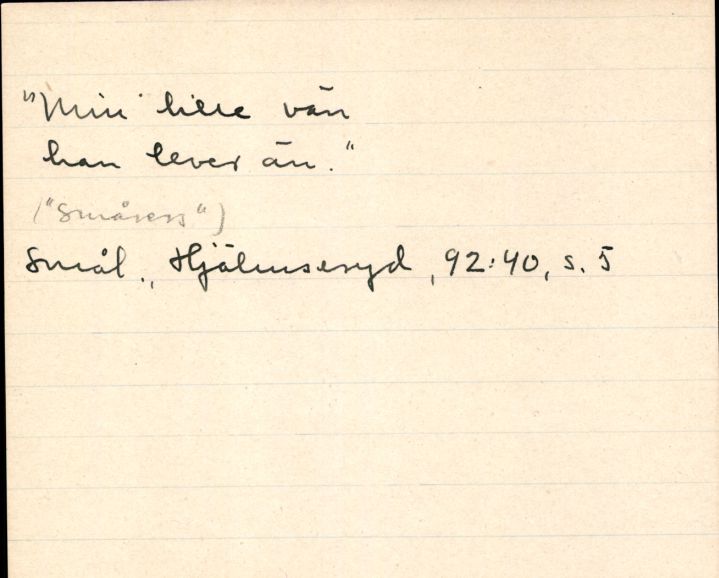 "Min lille vän
han lever än."
("Småvers")
Smål., Hjälmseryd, 92:40, s. 5